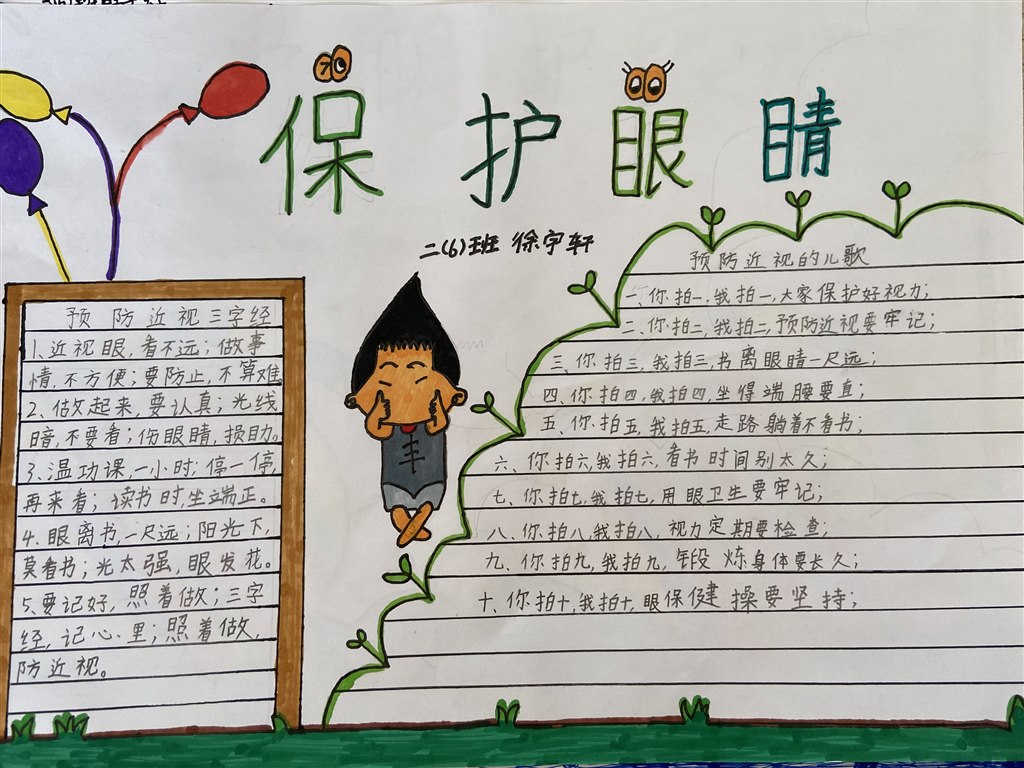 保护眼睛
二(6)班 徐宇轩
预防近视三字经
1、近视眼,看不远;做事
情,不方便;要防止,不算难
2、做起来,要认真;光线
暗,不要看;伤眼睛,损目力。
3、温功课,一小时;停一停,
再来看;读书时,坐端正。
4、眼离书,一尺远;阳光下,
莫看书;光太强,眼发花。
5、要记好,照着做;三字
经,记心里;照着做,
防近视。
预防近视的儿歌
一、你拍一,我拍一,大家保护好视力;
二、你拍二,我拍二,预防近视要牢记;
三、你拍三,我拍三,书离眼睛一尺远;
四、你拍四,我拍四,坐得端腰要直;
五、你拍五,我拍五,走路躺着不看书;
六、你拍六,我拍六,看书时间别太久;
七、你拍七,我拍七,用眼卫生要牢记;
八、你拍八,我拍八,视力定期要检查;
九、你拍九,我拍九,锻炼身体要长久;
十、你拍十,我拍十,眼保健操要坚持;